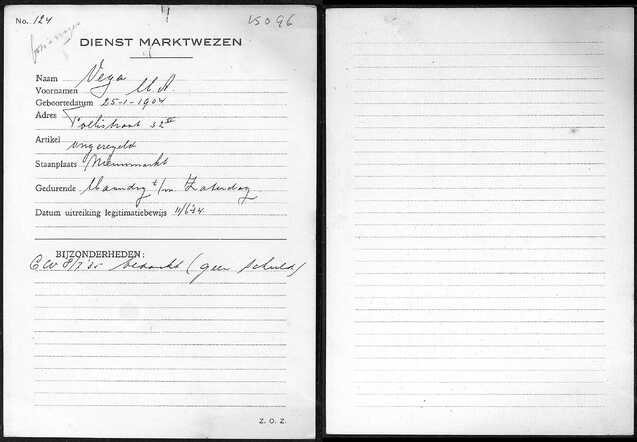 No. 124
DIENST MARKTWEZEN
Naam Vega
Voornamen M. A.
Geboortedatum 25-1-1904
Adres
32 II
Artikel ongeregeld
Staanplaats Nieuwmarkt
Gedurende Maandag t/m Zaterdag
Datum uitreiking legitimatiebewijs 11/6-34
BIJZONDERHEDEN:
bedankt (geen schuld)
Z. O. Z.